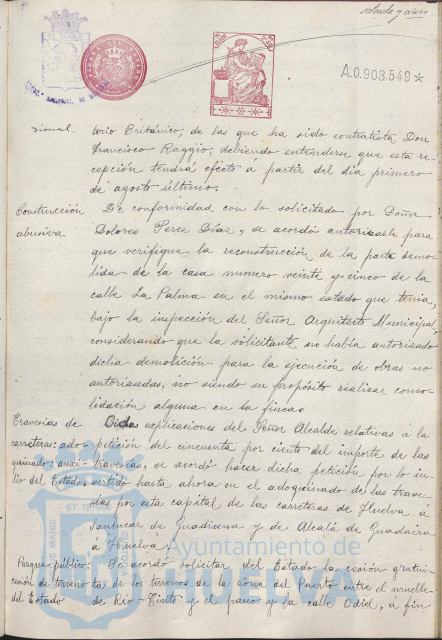 ochenta y cinco
A.0.903.549*
sional.
terio Británico, de las que ha sido contratista Don
Francisco Raggio, debiendo entenderse que esta re-
cepción tendrá efecto á partir del día primero
de agosto último.
Construcción abusiva
De conformidad con lo solicitado por Doña
Dolores Perce Díaz, se acordó autorizarle para
que verifique la reconstrucción de la parte demo-
lida de la casa numero veinte y cinco de la
calle La Palma en el mismo estado que tenia,
bajo la inspección del Señor Arquitecto Municipal,
considerando que la solicitante no había autorizado
dicha demolición para la ejecución de obras no
autorizadas, no siendo su propósito realizar conso-
lidación alguna en la finca.
Travesias de carreteras: ado-quinado: auxi-lio del Estado.
Oidas explicaciones del Señor Alcalde relativas á la
petición del cincuenta por ciento del importe de las
travesias, se acordó hacer dicha petición por lo in-
vertido hasta ahora en el adoquinado de las trave-
sías por esta capital de las carreteras de Huelva á
Sanlucar de Guadiana y de Alcalá de Guadaira
á Huelva.
Parque público: cesión de terreno del Estado
Se acordó solicitar del Estado la cesión gratui-
ta de los terrenos de la zona del Puerto entre el muelle
de Rio-Tinto y el paseo y la calle Odiel, á fin
Ayuntamiento de
HUELVA